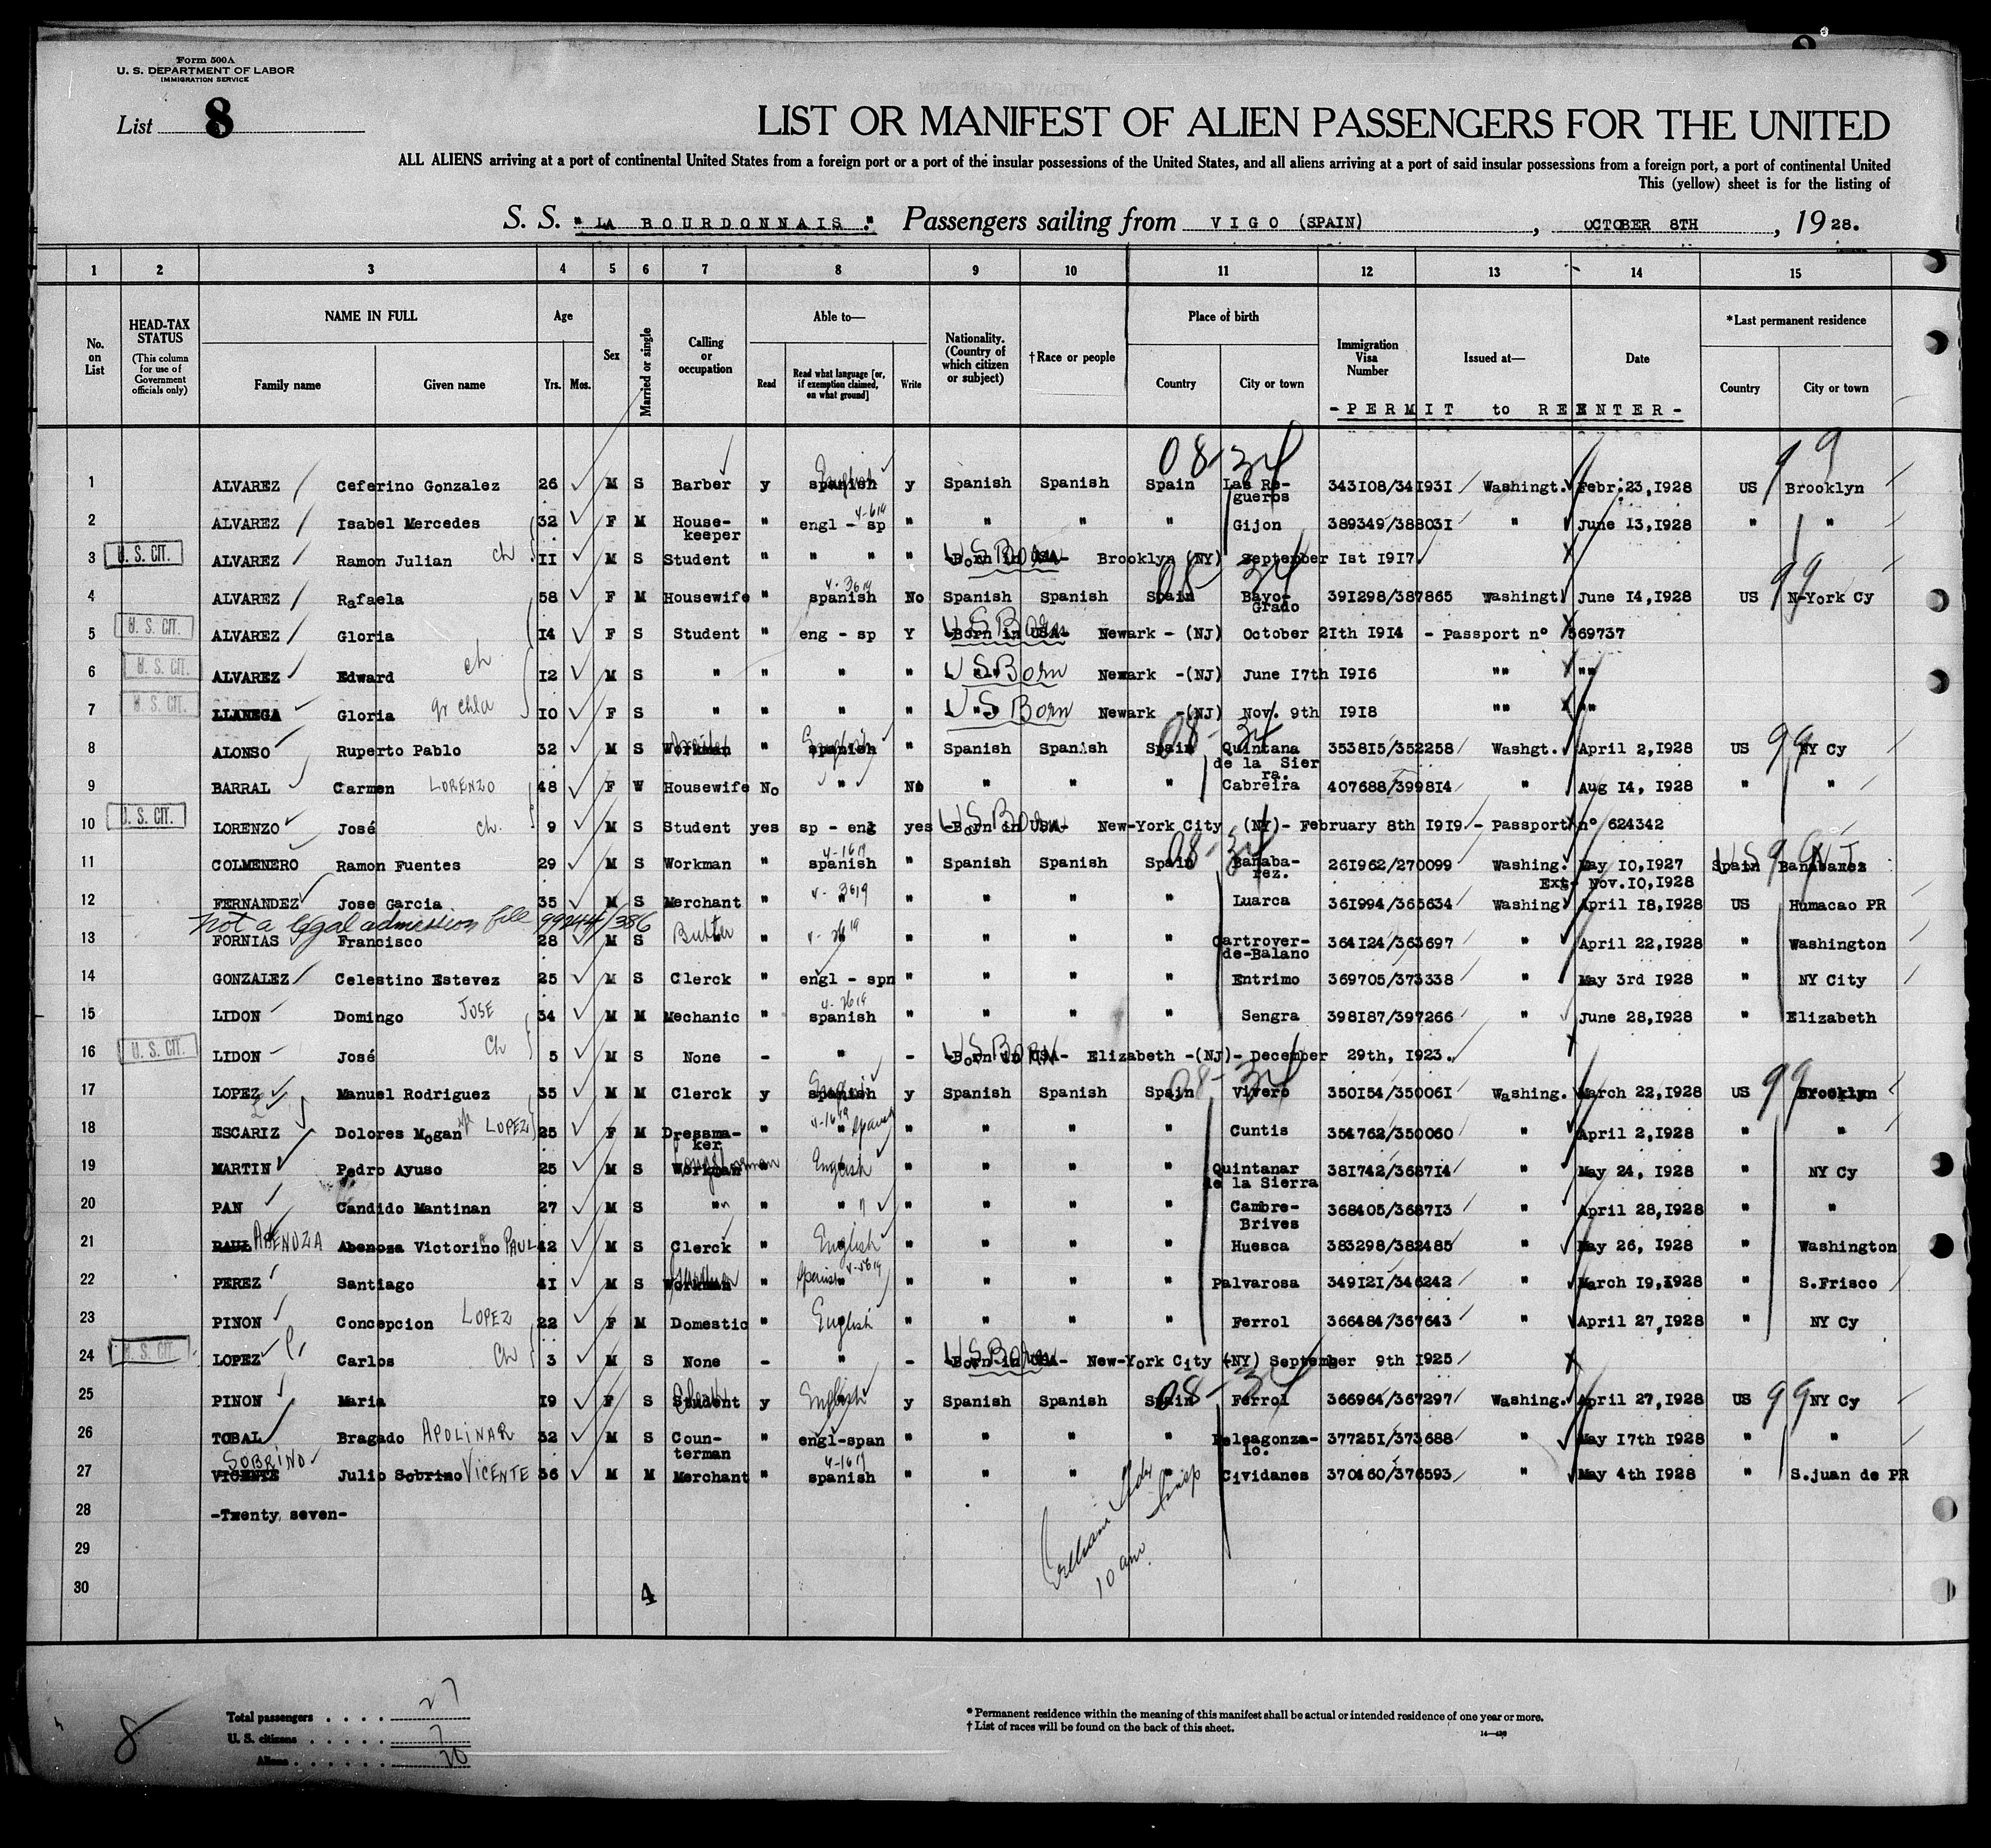 Form 500A
U. S. DEPARTMENT OF LABOR
IMMIGRATION SERVICE
List 8
LIST OR MANIFEST OF ALIEN PASSENGERS FOR THE UNITED
ALL ALIENS arriving at a port of continental United States from a foreign port or a port of the insular possessions of the United States, and all aliens arriving at a port of said insular possessions from a foreign port, a port of continental United
This (yellow) sheet is for the listing of
S. S. "LA BOURDONNAIS." Passengers sailing from VIGO (SPAIN), OCTOBER 8TH, 1928.
1 2 3 4 5 6 7 8 9 10 11 12 13 14 15
No. on List
HEAD-TAX STATUS (This column for use of Government officials only)
NAME IN FULL Family name Given name
Age Yrs. Mos.
Sex
Married or single
Calling or occupation
Able to— Read Read what language [or, if exemption claimed, on what ground] Write
Nationality. (Country of which citizen or subject)
†Race or people
Place of birth Country City or town
Immigration Visa Number Issued at— Date
-PERMIT to REENTER-
*Last permanent residence Country City or town
08-34 99
1 ALVAREZ Ceferino Gonzalez 26 M S Barber y spanish English y Spanish Spanish Spain Las Re-gueros 343108/341931 Washingt. Febr.23,1928 US Brooklyn
2 ALVAREZ Isabel Mercedes 32 F M House-keeper " engl - sp " " " " Gijon 389349/388031 " June 13,1928 " "
3 U. S. CIT. ALVAREZ Ramon Julian ch 11 M S Student " " " " -Born in USA- US Born Brooklyn (NY) September 1st 1917.
4 ALVAREZ Rafaela 58 F M Housewife " spanish No Spanish Spanish Spain Bayo-Grado 391298/387865 Washingt. June 14,1928 US N-York Cy
5 U. S. CIT. ALVAREZ Gloria 14 F S Student " eng - sp Y -Born in USA- US Born Newark - (NJ) October 21th 1914 - Passport n° 569737
6 U. S. CIT. ALVAREZ Edward ch 12 M S " " " " US Born Newark -(NJ) June 17th 1916 "" ""
7 U. S. CIT. LLANEGA Gloria gr chld 10 F S " " " " US Born Newark -(NJ) Nov. 9th 1918 "" ""
8 ALONSO Ruperto Pablo 32 M S Workman " spanish English " Spanish Spanish Spain Quintana de la Sierra. 353815/352258 Washgt. April 2,1928 US NY Cy
9 BARRAL Carmen LORENZO 48 F W Housewife No " No " " " Cabreira 407688/399814 " Aug 14, 1928 " "
10 U. S. CIT. LORENZO José ch. 9 M S Student yes sp - eng yes -Born in USA- US Born New-York City (NY)- February 8th 1919 - Passport n° 624342
11 COLMENERO Ramon Fuentes 29 M S Workman " spanish " Spanish Spanish Spain Banaba-rez. 261962/270099 Washing. May 10,1927 Spain US Banabarez NJ
Ext- Nov.10,1928
12 FERNANDEZ Jose Garcia 35 M S Merchant " " " " " " Luarca 361994/365634 Washing. April 18,1928 US Humacao PR
Not a legal admission file 99244/386
13 FORNIAS Francisco 28 M S Butler " " " " " " Cartrover-de-Balano 364124/363697 " April 22,1928 " Washington
14 GONZALEZ Celestino Estevez 25 M S Clerck " engl - spn " " " " Entrimo 369705/373338 " May 3rd 1928 " NY City
15 LIDON Domingo JOSE 34 M M Mechanic " spanish " " " " Sengra 398187/397266 " June 28,1928 " Elizabeth
16 U. S. CIT. LIDON José Ch 5 M S None - " - -Born in USA- US BORN Elizabeth -(NJ)- December 29th, 1923.
17 LOPEZ Manuel Rodriguez 35 M M Clerck y spanish English y Spanish Spanish Spain Vivero 350154/350061 Washing. March 22,1928 US Brooklyn
18 ESCARIZ Dolores Mogan LOPEZ 25 F M Dressma-ker " " Spanish " " " " Cuntis 354762/350060 " April 2,1928 " "
19 MARTIN Pedro Ayuso 25 M S Workman Longshoreman " English " " " " Quintanar de la Sierra 381742/368714 " May 24, 1928 " NY Cy
20 PAN Candido Mantinan 27 M S " " " " " " " Cambre-Brives 368405/368713 " April 28,1928 " "
21 PAUL ABENOZA Abenoza Victorino PAUL 42 M S Clerck " English " " " " Huesca 383298/382485 " May 26, 1928 " Washington
22 PEREZ Santiago 41 M S Workman " Spanish " " " " Palvarosa 349121/346242 " March 19,1928 " S.Frisco
23 PINON Concepcion LOPEZ 22 F M Domestic " English " " " " Ferrol 366484/367643 " April 27,1928 " NY Cy
24 U. S. CIT. LOPEZ Carlos Ch 3 M S None - " - -Born in USA- US Born New-York City (NY) September 9th 1925
25 PINON Maria 19 F S Student Clerk y English y Spanish Spanish Spain Ferrol 366964/367297 Washing. April 27,1928 US NY Cy
26 TOBAL Bragado APOLINAR 32 M S Coun-terman " engl-span " " " " Peleagonza-lo. 377251/373688 " May 17th 1928 " "
27 VICENTE SOBRINO Julio Sobrino VICENTE 36 M M Merchant " spanish " " " " Cividanes 370460/376593 " May 4th 1928 " S.juan de PR
28 -Twenty seven-
29
30 4
10 am.
Total passengers . . . . 27
U. S. citizens . . . . . 7
Aliens . . . . . . 20
8
* Permanent residence within the meaning of this manifest shall be actual or intended residence of one year or more.
† List of races will be found on the back of this sheet.